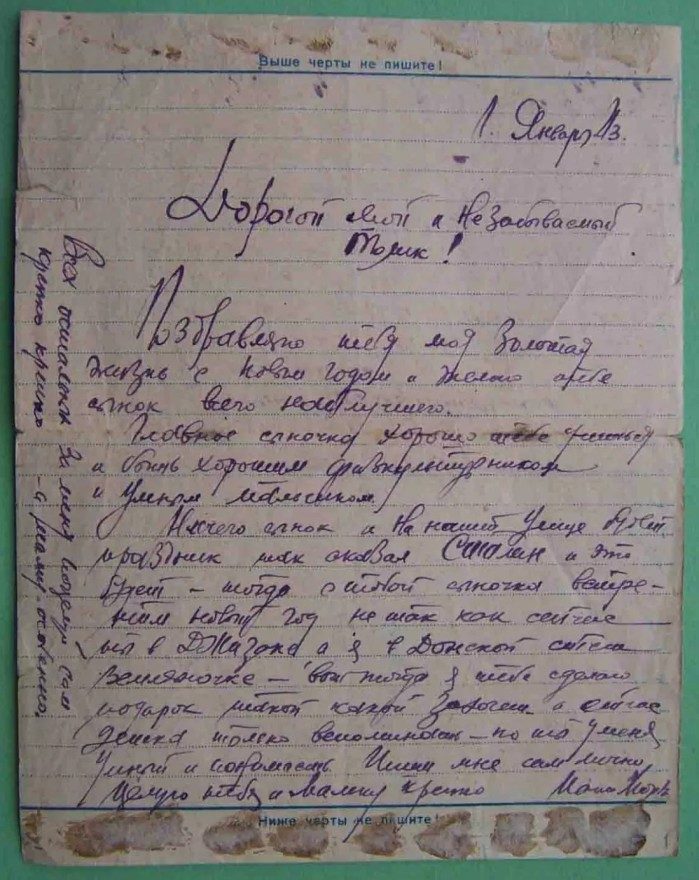 Выше черты не пишите!
1. Январь 43.
Дорогой мой и Незабываемый
Толик!
Поздравляю тебя моя Золотая
жизнь с Новым годом и желаю тебе
сынок всего наилучшего.
Главное сыночка хорошо тебе учиться
и быть хорошим физкультурником
и умным мальчиком.
Ничего сынок и На нашей Улице будет
праздник так сказал Сталин и это
будет – тогда с тобой сыночка встре-
тим новый год не так как сейчас
ты в Джизаке а я в Донской степи
Земляночке – вот тогда я тебе сделаю
подарок такой какой Захочеш а сейчас
только вспоминать – но ты у меня
Умный и Пиши мне сам лично
Целую тебя и Мамку крепко Папа
Всех остальных За меня поцелуй сам
крепко крепко – а маму – особенно.
Ниже черты не пишите!